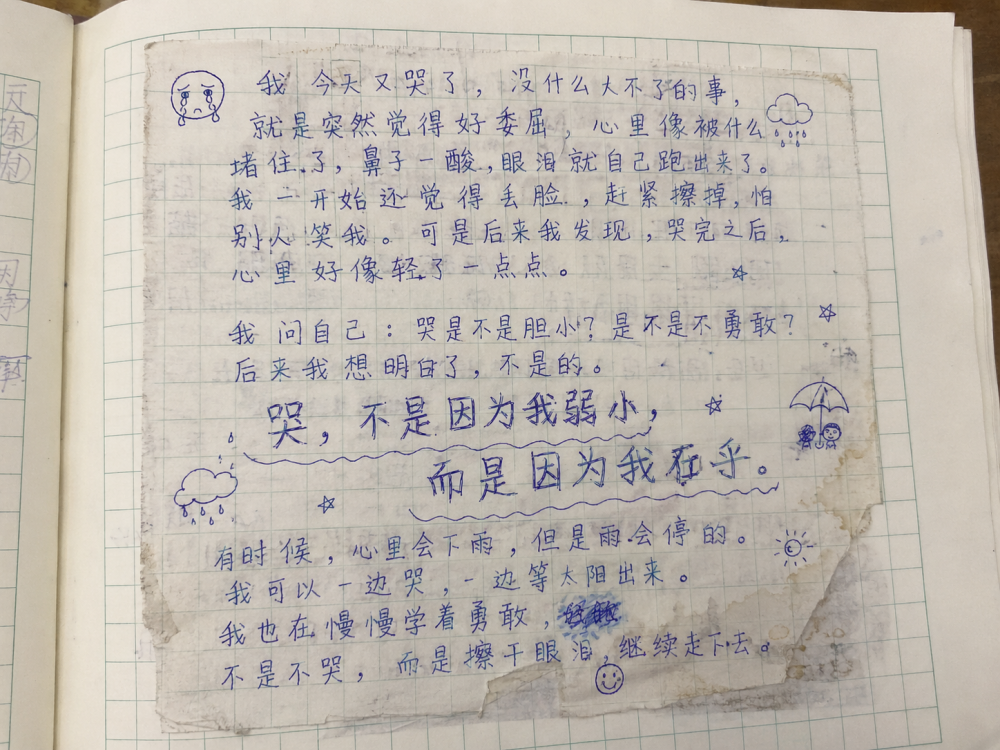 我今天又哭了，没什么大不了的事，
就是突然觉得好委屈，心里像被什么
堵住了，鼻子一酸，眼泪就自己跑出来了。
我一开始还觉得丢脸，赶紧擦掉，怕
别人笑我。可是后来我发现，哭完之后，
心里好像轻了一点点。
我问自己：哭是不是胆小？是不是不勇敢？
后来我想明白了，不是的。
哭，不是因为我弱小，
而是因为我在乎。
有时候，心里会下雨，但是雨会停的。
我可以一边哭，一边等太阳出来。
我也在慢慢学着勇敢，
不是不哭，而是擦干眼泪，继续走下去。